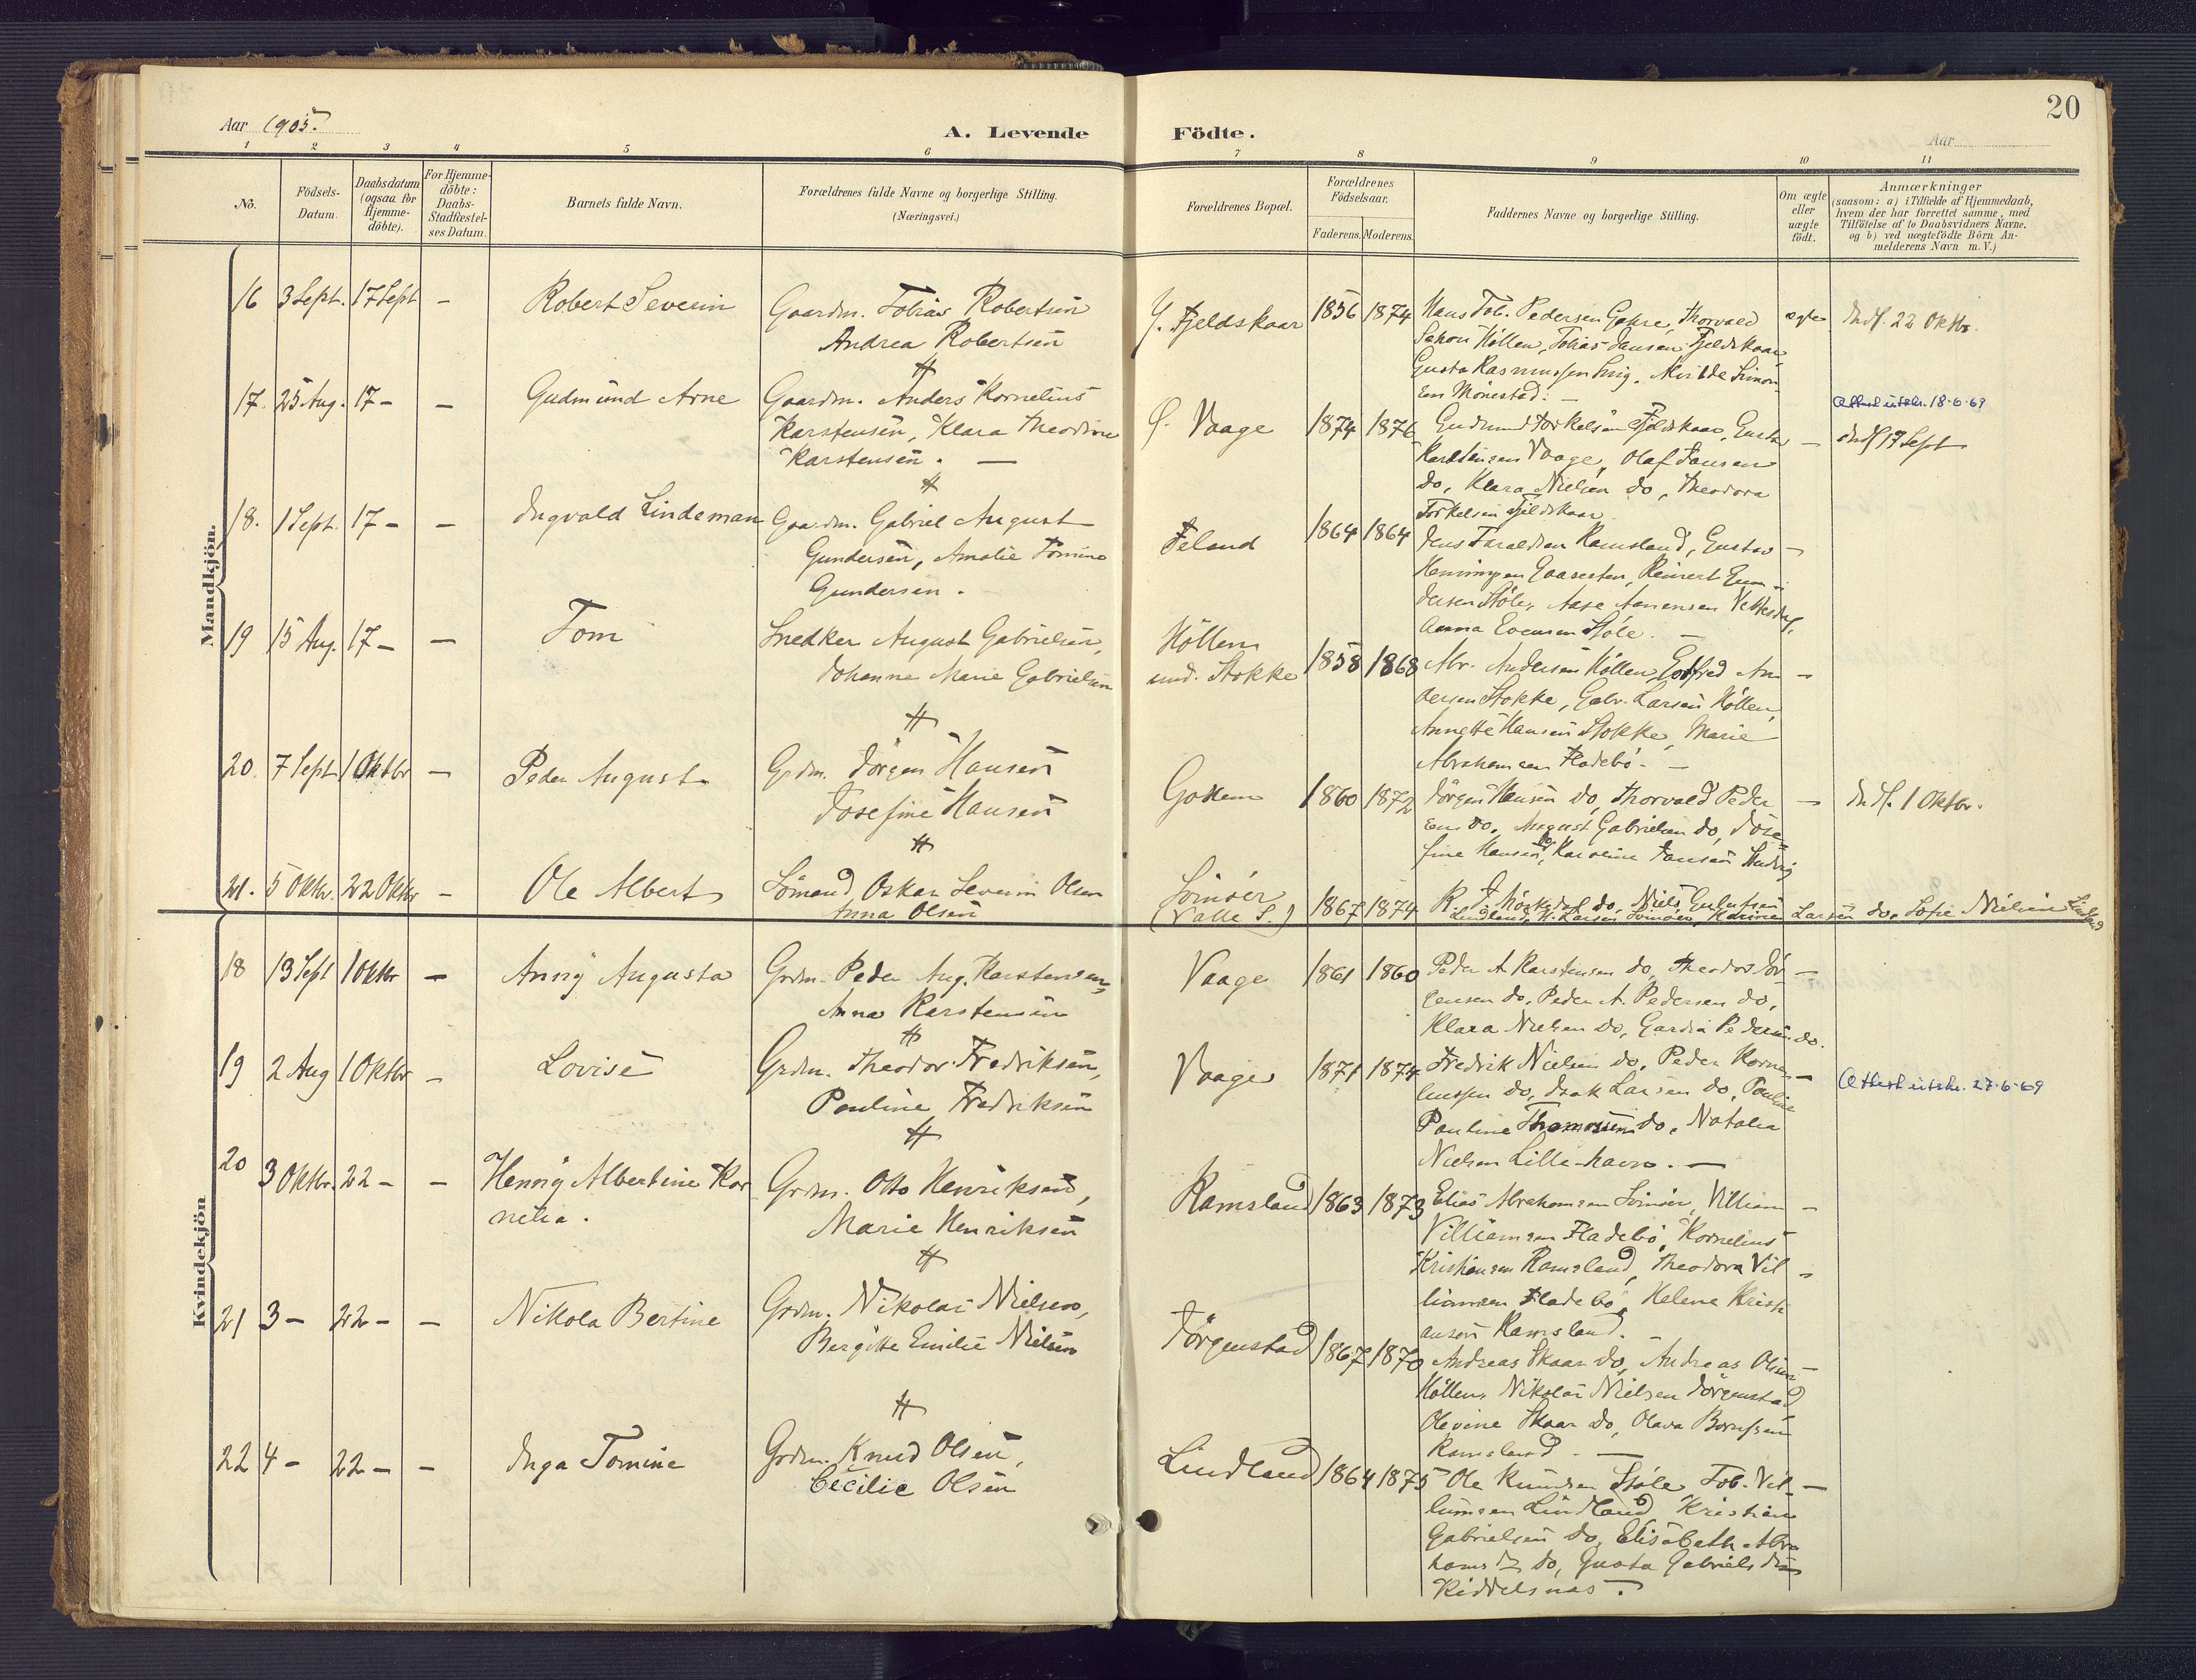 20
Aar 1905.
A. Levende Födte.
Aar
1 2 3 4 5 6 7 8 9 10 11
No.
Födsels-
Datum.
Daabsdatum
(ogsaa for
Hjemme-
döbte).
For Hjemme-
döbte:
Daabs-
Stadfæstel-
ses Datum.
Barnets fulde Navn.
Forældrenes fulde Navne og borgerlige Stilling.
(Næringsvei.)
Forældrenes Bopæl.
Forældrenes
Födselsaar.
Faderens. Moderens.
Faddernes Navne og borgerlige Stilling.
Om ægte
eller
uægte
födt.
Anmærkninger
(saasom: a) i Tilfælde af Hjemmedaab,
hvem der har forrettet samme, med
Tilföielse af to Daabsvidners Navne,
og b) ved uægtefödte Börn An-
melderens Navn m. V.)
Mandkjön.
16 3 Sept. 17 Sept – Robert Severin
Gaardm. Tobias Robertsen
Andrea Robertsen
Y. Fjeldskaar 1856 1874
Hans Tob. Pedersen Gahre, Thorvald
Höllen, Tobias Jansen Fjeldskaar,
Gusta Rasmussen
Mönestad. –
ægte
Indf. 22 Oktbr.
17. 25 Aug. 17 – – Gudmund Arne
Gaardm. Anders Kornelius
Karstensen, Klara Theodine
Karstensen. –
Vaage 1874 1876
Gudmund Torkelsen Fjeldskaar, Gustav
Karstensen Vaage, Olaf Jansen
do, Klara Nielsen do, Theodora
Torkelsen Fjeldskaar
–
Attest utskr. 18-6-69
Indf 17 Sept
18. 1 Sept. 17 – – Ingvald Lindeman
Gaardm. Gabriel August
Gundersen, Amalie Tomine
Gundersen.
Feland 1864 1864
Jens Taraldsen Ramsland, Gustav
Henningsen, Reinert Gun-
dersen Stöle, Aase Aanensen
Anna Evensen Stöle. –
–
19 15 Aug. 17 – – Tom
Snedker August Gabrielsen,
Johanne Marie Gabrielsen
Höllen
und. Stokke 1858 1868
Abr. Andersen Höllen, Gotfred An-
dersen Stokke, Gabr. Larsen Höllen,
Annette Hansen Stokke, Marie
Abrahamsen Fladebö. –
–
20. 7 Sept 1 Oktbr – Peder August
Grdm. Jörgen Hansen
Josefine Hansen
1860 1872
Jörgen Hansen do, Thorvald Peder
sen do, August Gabrielsen do, Jose-
fine Hansen do, Karoline Jansen
–
Indf. 1 Oktbr.
21. 5 Oktbr. 22 Oktbr – Ole Albert
Sömand Oskar Severin Olsen
Anna Olsen
Svinöer
(Valle S.) 1867 1874
do, Niels Gulufsen
Lindland, K. Larsen Svinöer, Larsen do, Sofie Nielsen
Kvindekjön
18 13 Sept 1 Oktbr – Anny Augusta
Grdm. Peder Aug. Karstensen,
Anna Karstensen
Vaage 1861 1860
Peder A Karstensen do, Theodor Jör-
gensen do, Peder A. Pedersen do,
Klara Nielsen do, Gardia Pedersen do.
–
19 2 Aug 1 Oktbr – Lovise
Grdm. Theodor Fredriksen,
Pauline Fredriksen
Vaage 1871 1874
Fredrik Nielsen do, Peder Korne-
liussen do, Isak Larsen do, Pauline
Pauline Thomassen do, Natalia
Nielsen Lille-havn. –
–
Attest utskr. 27-6-69
20 3 Oktbr. 22 – – Henny Albertine Kor
nelia.
Grdm. Otto Henriksen,
Marie Henriksen
Ramsland 1863 1873
Elias Abrahamsen Svinöer, Villiam
Villiamsen Fladebö, Kornelius
Kristiansen Ramsland, Theodora Vil-
liamsen Fladebö, Helene Kristi
ansen Ramsland.
–
21 3 – 22 – – Nikola Bertine
Grdm. Nikolai Nielsen,
Bergitte Emilie Nielsen
Jörgenstad 1867 1870
Andreas Skaar do, Andreas Olsen
Höllen, Nikolai Nielsen Jörgenstad,
Olevine Skaar do, Olava Berntsen
Ramsland. –
–
22 4 – 22 – – Inga Tomine
Grdm. Knud Olsen,
Cecilie Olsen
Lindland 1864 1875
Ole Knudsen Stöle, Tob. Vil-
lumsen Lindland, Kristian
Gabrielsen do, Elisabeth Abra
hams do, Gusta Gabriels
Riddelsnæs.
–